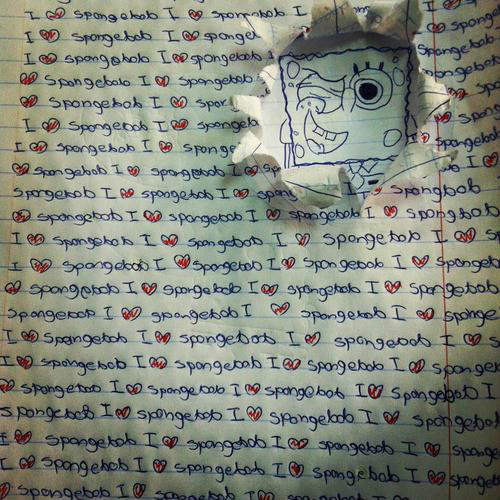 I ❤ spongebob I ❤ spongebob I ❤ spongebob
I ❤ spongebob I ❤ spongeb spongebob
I ❤ spongebob I ❤ spo spongebob
❤ spongebob I ❤ spongeb
❤ spongebob I ❤ spon
I ❤ spongebob I ❤ spongeb
I ❤ spongebob I ❤ spongeb
❤ spongebob I ❤ spongeb spongebob
spongebob I ❤ spongebob I ❤ sp ❤ spongbob
❤ spongebob I ❤ spongebob I ❤ spongebob I ❤ spong
I ❤ spongebob I ❤ spongebob I ❤ spongebob I ❤ s
I ❤ spongebob I ❤ spongebob I ❤ spongebob I ❤
❤ spongebob I ❤ spongebob I ❤ spongebob I ❤ sponge
spongebob I ❤ spongebob I ❤ spongebob I ❤ sponge
I ❤ spongebob I ❤ spongebob I ❤ spongebob I ❤
I ❤ spongebob I ❤ spongebob I ❤ spongebob I ❤ spongeb
❤ spongebob I ❤ spongebob I ❤ spongebob I ❤ spongeb
spongebob I ❤ spongebob I ❤ spongebob I ❤ spongebob
I ❤ spongebob I ❤ spongebob I ❤ spongebob I ❤
I ❤ spongebob I ❤ spongebob I ❤ spongebob I ❤ spong
I ❤ spongebob I ❤ spongebob I ❤ spongebob I ❤ spongebob